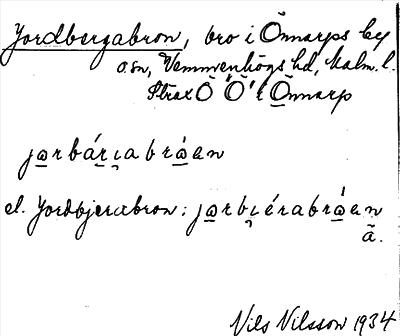 Jordbergabron, bro i Önnarps by
o. sn, Vemmenhögs hd, Malm. l.
Strax Ö Ö't Önnarp
jo̲rbár̲ı̣abrȯ̲an
el. Jordbjerabron: jo̲rbı̣érabrȯ̲an
ã.
Nils Nilsson 1934